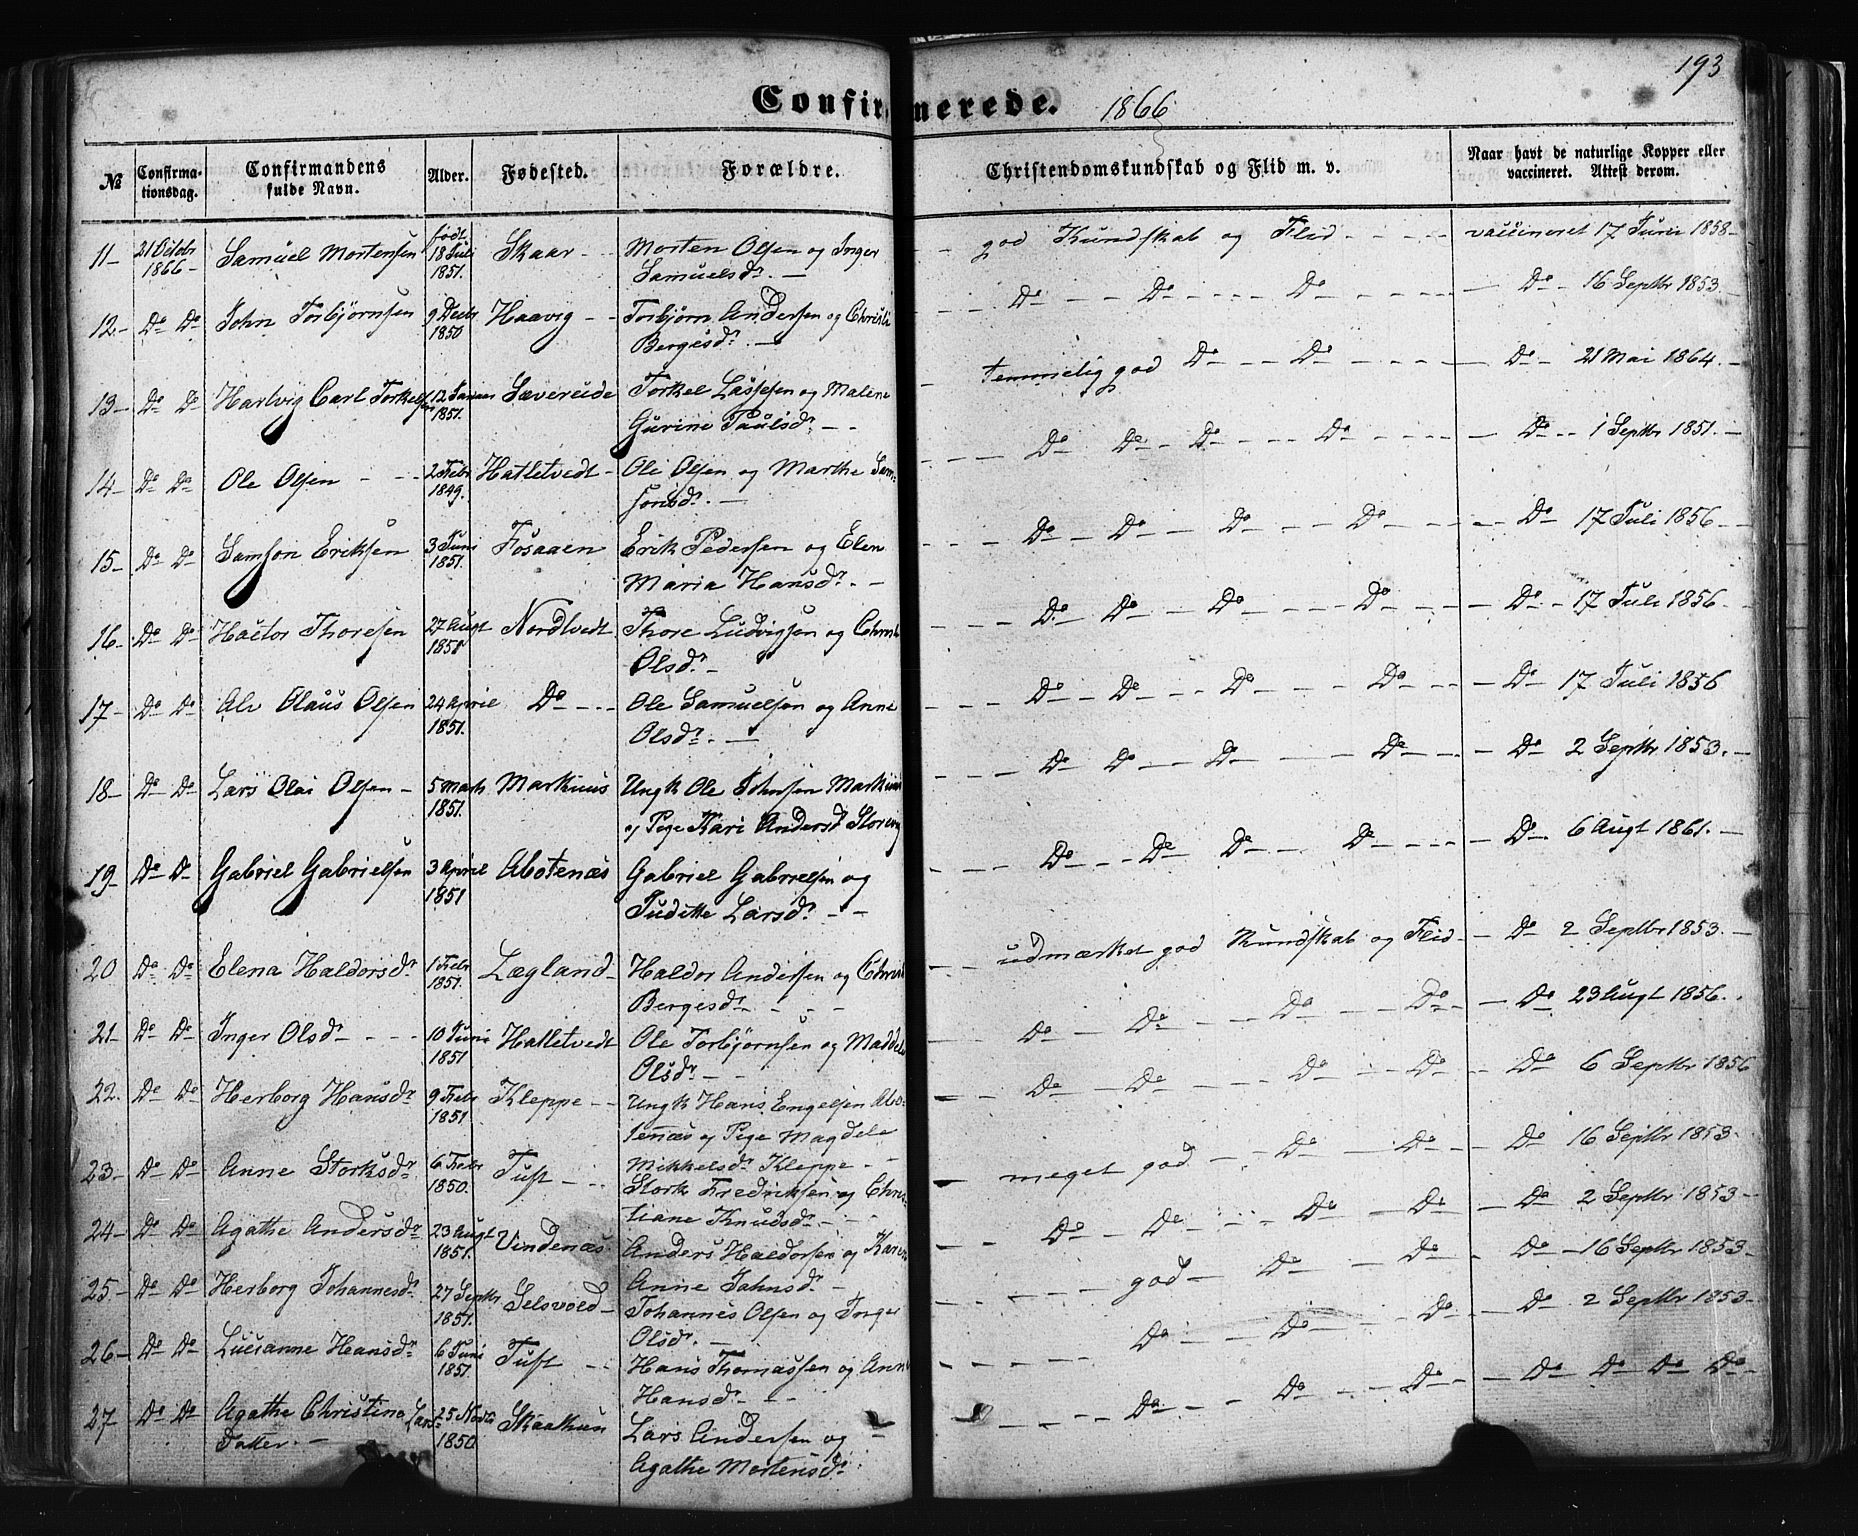 193
Confirmerede. 1866
№ Confirmationsdag. Confirmandens fulde Navn. Alder. Fødested. Forældre. Christendomskundskab og Flid m. v. Naar havt de naturlige Kopper eller vaccineret. Attest derom.
11 – 21 Octobr 1866 Samuel Mortensen født 18 Juli 1851. Skaar – Morten Olsen og Inger Samuelsdr. – god Kundskab og Flid – vaccineret 17 Juni 1858 –
12 – Do Do John Torbjørnsen 9 Decbr 1850 Haavig – Torbjørn Andersen og Christi Bergesdr. – Do – Do – Do – Do – 16 Septbr 1853. –
13 – Do Do Hartvig Carl Torkelsen 12 Januar 1851. Sævereide Torkel Lassesen og Malene Gurine Paulsdr. – temmelig god Do – Do – Do – 21 Mai 1864. –
14 – Do Do Ole Olsen – 2 Febr 1849. Hatletvedt – Ole Olsen og Marthe Samsonsdr. – Do Do – Do – Do – Do – 1 Septbr 1851. –
15 – Do Do Samson Eriksen 3 Juni 1851. Fosaaen Erik Pedersen og Elen Maria Hansdr. – Do – Do – Do – Do – Do – 17 Juli 1856 –
16 – Do Do Hactor Thoresen 27 Augt 1851 Nordtvedt Thore Ludvigsen og Christi Olsdr. – Do – Do – Do – Do – Do – 17 Juli 1856 –
17 – Do Do Alv Olaus Olsen 24 April 1851. Do – Ole Samuelsen og Anne Olsdr. – Do – Do – Do – Do – Do – 17 Juli 1856
18 – Do Do Lars Olai Olsen – 5 Marts 1851. Markhuus Ungk Ole Johnsen Markhuus og Pige Kari Andersd Storeng Do – Do – Do – Do – Do – 2 Septbr 1853. –
19 – Do Do Gabriel Gabrielsen 3 April 1851 Abotenæs Gabriel Gabrielsen og Juditte Larsdr. – Do – Do Do – Do – Do – 6 Augt 1861. –
20 Do Do Elena Haldorsdr 1 Febr 1851. Lægland – Haldor Andersen og Christi Bergesdr. – udmærket god Kundskab og Flid – Do – 2 Septbr 1853. –
21 – Do Do Inger Olsdr – 10 Juni 1851 Hatletvedt Ole Torbjørnsen og Maddele Olsdr – Do – Do – Do – Do – Do 23 Augt 1856. –
22. Do Do Herborg Hansdr 9 Febr 1851 Kleppe – Ungk Hans Engelsen Abotenæs og Pige Magdele Mikkelsdr Kleppe – Do – Do – Do – Do – Do – 6 Septbr 1856
23 – Do Do Anne Storksdr 6 Febr 1850. Tuft – Stork Fredriksen og Christiane Knudsdr – meget god – Do – Do – Do – 16 Septbr 1853 –
24 – Do Do Agathe Andersdr 23 Augt 1851. Vindenæs Anders Haldorsen og Karen Anne Jahnsdr – Do – Do – Do – Do – Do – 2 Septbr 1853 –
25 – Do Do Herborg Johannesdr 27 Septbr 1851. Selsvold – Johannes Olsen og Inger Olsdr. – god – Do – Do – Do – 16 Septbr 1853 –
26 – Do Do Lucianne Hansdr 6 Juni 1851. Tuft – Hans Thomassen og Anne Hansdr – Do – Do – Do – Do – 2 Septbr 1853 –
27 – Do Do Agathe Christine Larsdatter. – 25 Novbr 1850 Skaathun Lars Andersen og Agathe Mortensdr Do – Do – Do – Do – Do – Do – Do –